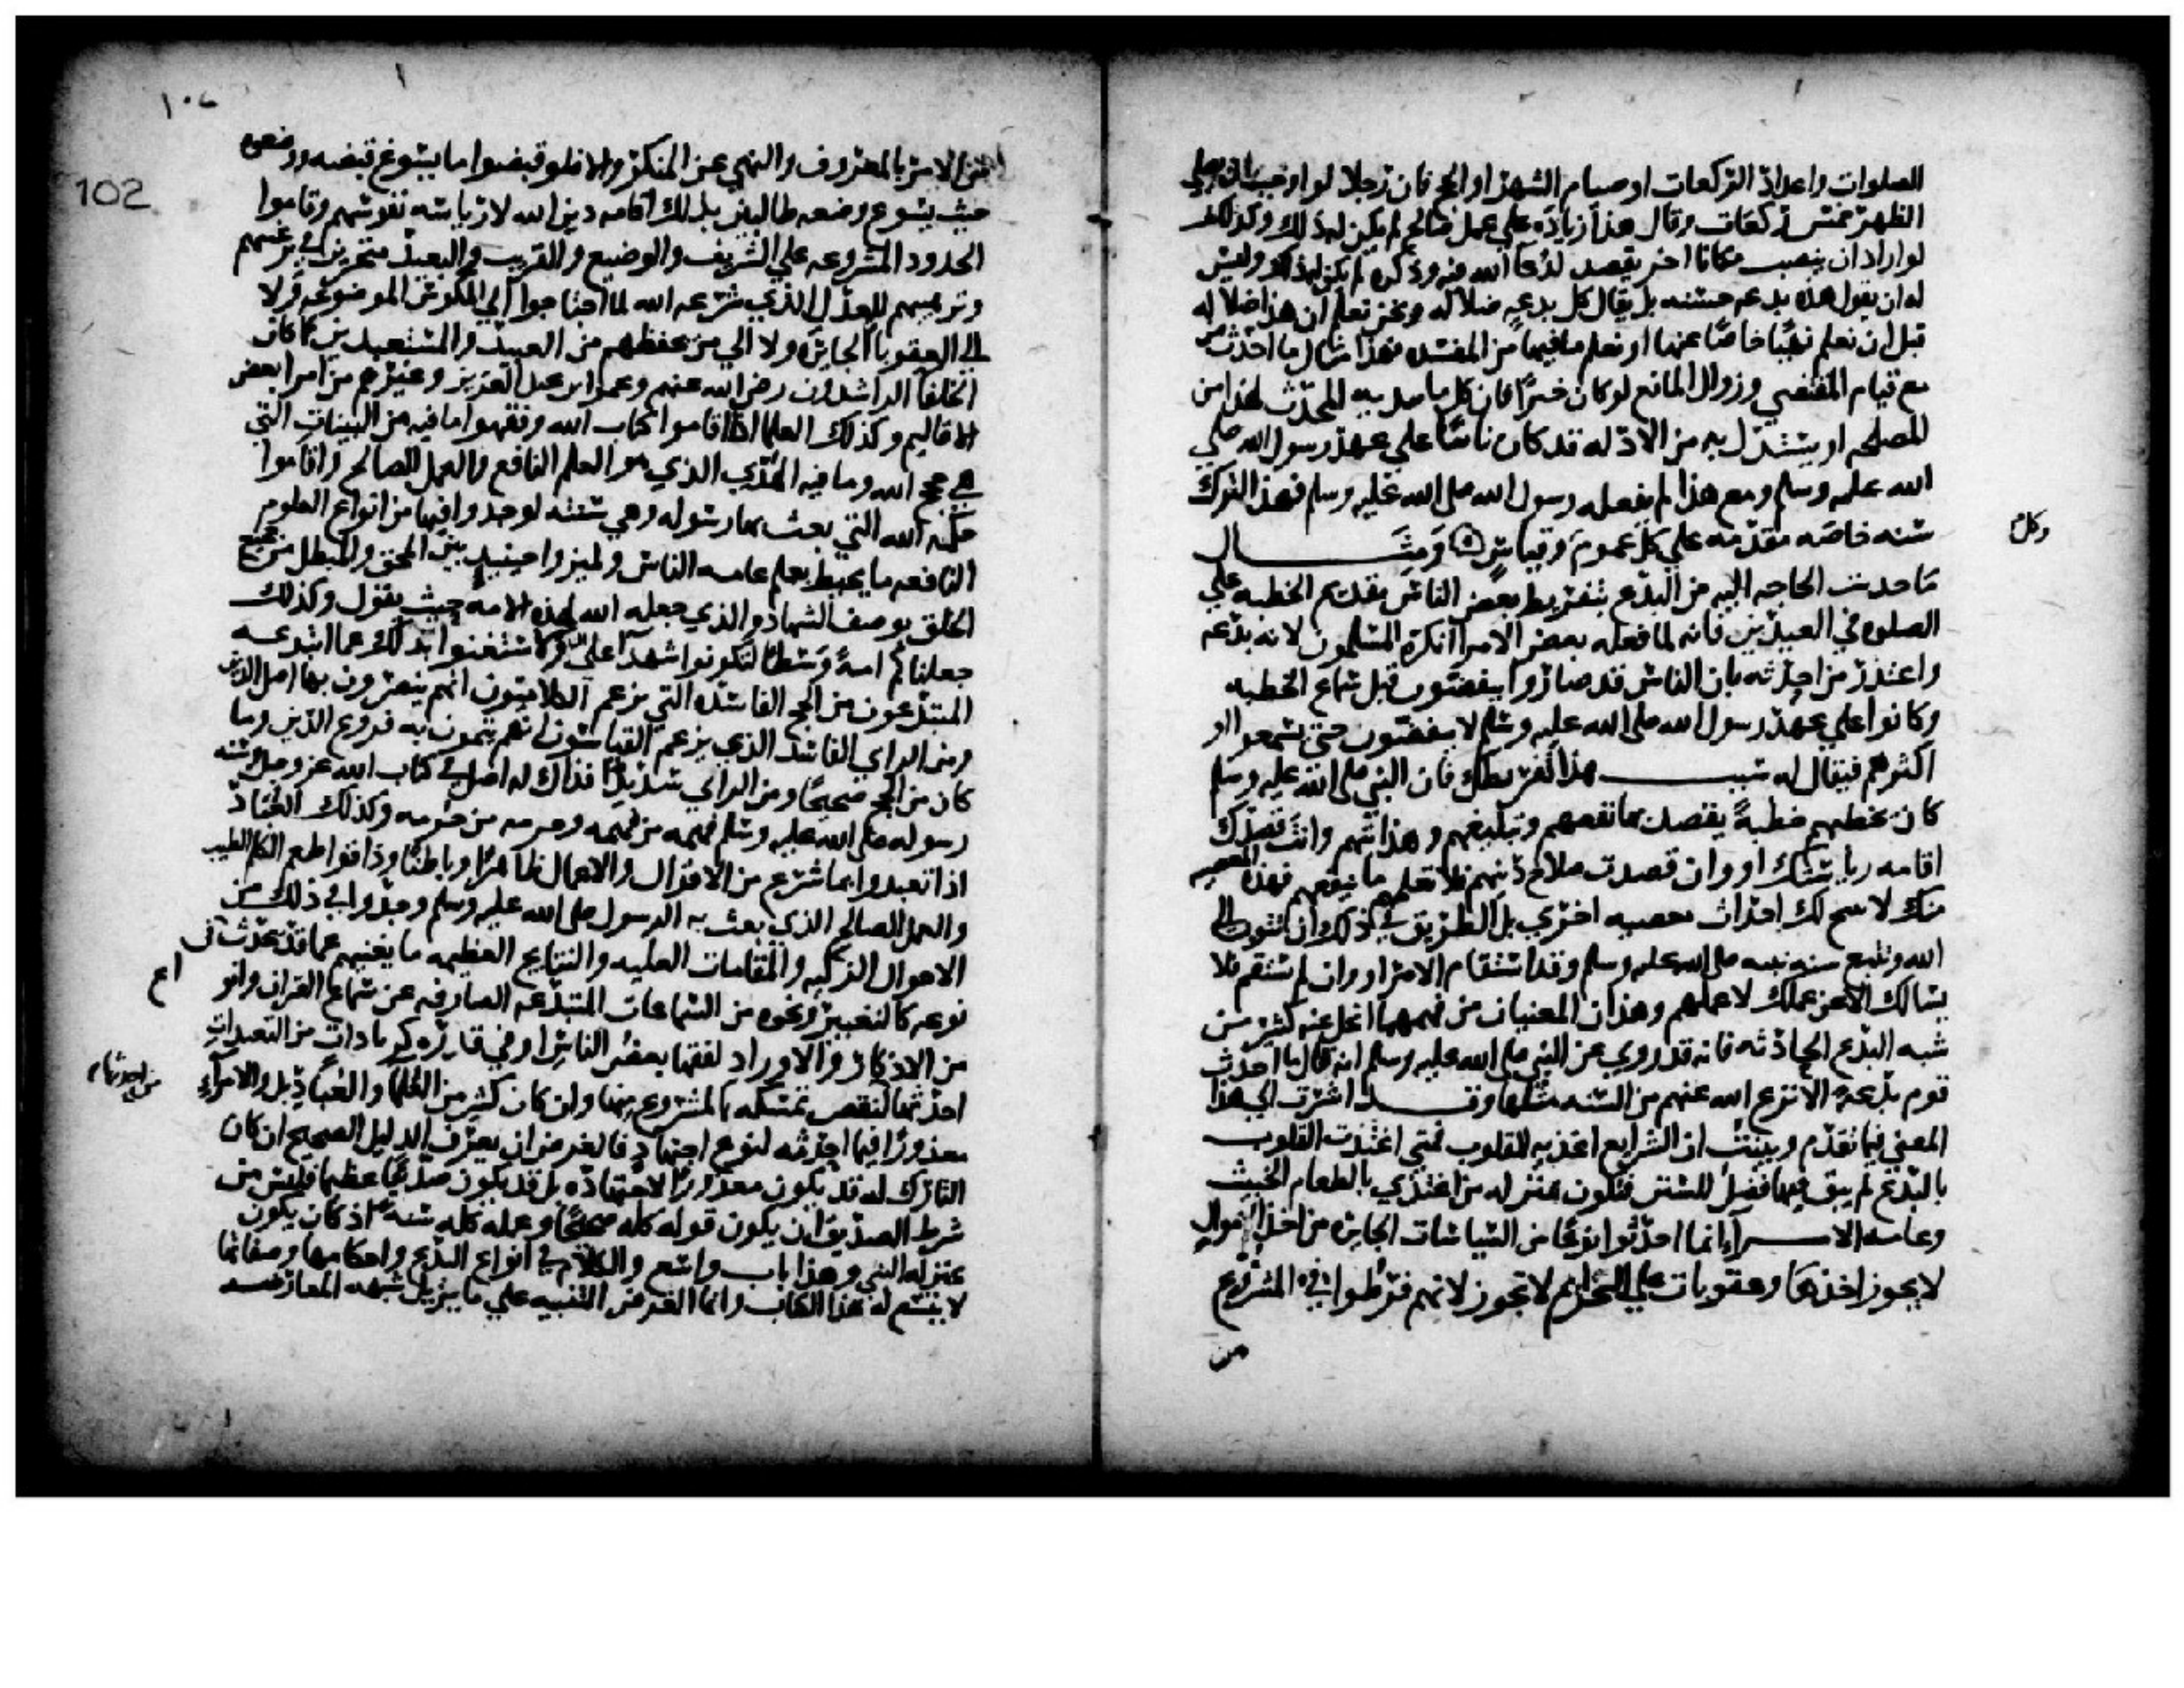 الصلوات واعداد الركعات او صيام الشهر او الحج فان رجلا لو احب ان يصلي
الظهر خمس ركعات وقال هذا زيادة علي عمل صالح لم يكن له ذلك وكذلك
لو اراد ان ينصب مكانا اخر يقصد لدعا الله فيه وذكره لم يكن له ذلك وليس
له ان يقول هذه بدعه حسنه بل يقال كل بدعه ضلاله ونحن نعلم ان هذا ضلاله
قبل ان نعلم نهيا خاصا عنها او نعلم ما فيها من المفسده فهذا مثال لما احدث
مع قيام المقتضي وزوال المانع لو كان خيرا فان كل ما يبديه المحدث لهذا من
المصلحه او يستدل به من الادله قد كان ثابتا علي عهد رسول الله صلي
الله عليه وسلم ومع هذا لم يفعله رسول الله صلي الله عليه وسلم فهذا الترك
سنه خاصه مقدمه علي كل عموم وقياس ومثال
وكل
ما حدثت الحاجه اليه من البدع بتفريط بعض الناس تقديم الخطبه علي
الصلوه في العيدين فانه لما فعله بعض الامرا انكره المسلمون لانه بدعه
واعتذر من احدثه بان الناس قد صاروا ينفضون قبل سماع الخطبه
وكانوا علي عهد رسول الله صلي الله عليه وسلم لا ينفضون حتي يسمعوا او
اكثرهم فيقال له سبب هذا تفريطك فان النبي صلي الله عليه وسلم
كان يخطبهم خطبة يقصد بها نفعهم وتبليغهم وهدايتهم وانت قصدك
اقامه رياستك او وان قصدت صلاح دينهم فلا تعلمهم ما ينفعهم فهذه المعصيه
منك لا تبيح لك احداث معصيه اخري بل الطريق في ذلك ان تتوب الي
الله وتتبع سنه نبيه صلي الله عليه وسلم وقد استقام الامر او وان لم يستقم فلا
يسالك الا عن عملك لا عملهم وهذان المعنيان من فهمهما انحل عنه كثير من
شبه البدع الحادثه فانه قد روي عن النبي صلي الله عليه وسلم انه قال ما احدث
قوم بدعة الا نزع الله عنهم من السنه مثلها وقد اشرت الي هذا
المعني فيما تقدم وبينت ان الشرايع اغذيه القلوب فمتي اغتذت القلوب
بالبدع لم يبق فيها فضل للسنن فتكون بمنزله من اغتذي بالطعام الخبيث
وعامه الامرآ انما احدثوا انواعا من السياسات الجايره من اخذ اموال
لا يجوز اخذها وعقوبات علي الجرايم لا تجوز لانهم فرطوا في المشروع
من
١٠٢
102
من الامر بالمعروف والنهي عن المنكر والا فلو قبضوا ما يسوغ قبضه ووضعوه
حيث يسوغ وضعه طالبين بذلك اقامه دين الله لا رياسه نفوسهم وقاموا
الحدود المشروعه علي الشريف والوضيع والقريب والبعيد متحرين في ترغيبهم
وترهيبهم للعدل الذي شرعه الله لما احتاجوا الي المكوس الموضوعه ولا
الي العقوبات الجايره ولا الي من يحفظهم من العبيد والمستعبدين كما كان
الخلفا الراشدون رضي الله عنهم وعمر ابن عبد العزيز وغيرهم من امرا بعض
الاقاليم وكذلك العلما اذا اقاموا كتاب الله وفقهوا ما فيه من البينات التي
هي حجج الله وما فيه الهدي الذي هو العلم النافع والعمل الصالح واقاموا
حكمه الله التي بعث بها رسوله وهي سنته لوجدوا فيها من انواع العلوم
النافعه ما يحيط بعلم عامه الناس ولميزوا حينيذ بين المحق والمبطل من جميع
الخلق بوصف الشهاده الذي جعله الله لهذه الامه حيث يقول وكذلك
جعلناكم امة وسطا لتكونوا شهدآ علي ولاستغنوا بذلك عما ابتدعه
المبتدعون من الحجج الفاسده التي يزعم الكلاميون انهم ينصرون بها اصل الدين
ومن الراي الفاسد الذي يزعم القياسون انهم يتمون به فروع الدين وما
كان من الحجج صحيحا ومن الراي سديدا فذاك له اصل في كتاب الله عز وجل وسنه
رسوله صلي الله عليه وسلم فهمه من فهمه وحرمه من حرمه وكذلك العباد
اذا تعبدوا بما شرع من الاقوال والاعمال ظاهرا وباطنا وذاقوا طعم الكلم الطيب
والعمل الصالح الذي بعث به الرسول صلي الله عليه وسلم وجدوا في ذلك من
الاحوال الزكيه والمقامات العليه والنتايج العظيمه ما يغنيهم عما قد يحدث في
نوعه كالتغبير ونحوه من السماعات المبتدعه الصارفه عن سماع القران وانو
اع
من الاذكار والاوراد لفقها بعض الناس او في قدره كزيادات من التعبدات
احدثها لنقص تمسكه بالمشروع منها وان كان كثير من العلما والعباد بل والامرآء
من احدثها
معذورا فيما احدثه لنوع اجتهاد فالغرض ان يعرف الدليل الصحيح وان كان
التارك له قد يكون معذورا لاجتهاده بل قد يكون صديقا عظيما فليس من
شرط الصديق ان يكون قوله كله صحيحا وعمله كله سنه اذ كان يكون
بمنزله النبي وهذا باب واسع والكلام في انواع البدع واحكامها وصفاتها
لا يتسع له هذا الكتاب وانما الغرض التنبيه علي ما يزيل شبهه المعارضه